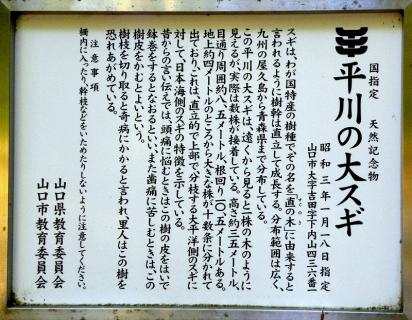 国指定 天然記念物
平川の大スギ
昭和三年一月一八日指定
山口市大字吉田字下内山四三六番
スギは、わが国特産の樹種でその名を「直の木」に由来すると
すぐのき
言われるように樹幹は直立して成長する。分布範囲は広く、
九州の屋久島から青森県まで分布している。
この平川の大スギは、遠くから見ると一株の木のように
見えるが、実際は数株が接着している。高さ約三五メートル、
目通り周囲約八・五メートル、根回り一〇・五メートルある。
地上約四メートルのところから大きな株が十数条に分かれて
出ており、これは、直立的で上部で分枝する太平洋側のスギに
対して、日本海側のスギの特徴を示している。
昔からの言い伝えでは、頭痛に悩むときはこの樹の皮をはいで
鉢巻をするとなおるといい、また歯痛に苦しむときは、この
樹皮をかむとよいという。
樹枝を切り取ると奇病にかかると言われ、里人はこの樹を
恐れあがめている。
注意事項
柵内に入ったり、幹枝などをいためたりしないように注意してください。
山口県教育委員会
山口市教育委員会